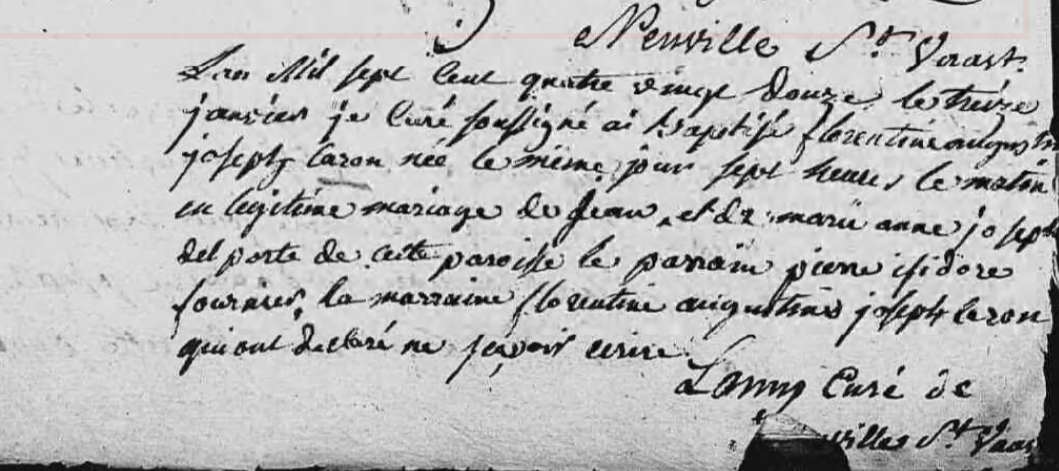 Neuville St. Vaast.
L'an Mil sept Cent quatre vingt Douze, le treize
janvier je Curé soussigné ai baptisé florentine augustine
joseph Caron née le même jour sept heures le matin
en legitime mariage de Jean, et de marie anne joseph
delporte de cette paroisse le parrain pierre isidore
fournier, la marraine florentine augustine joseph Caron
qui ont declaré ne sçavoir ecrire.
Curé de
St. Vaast